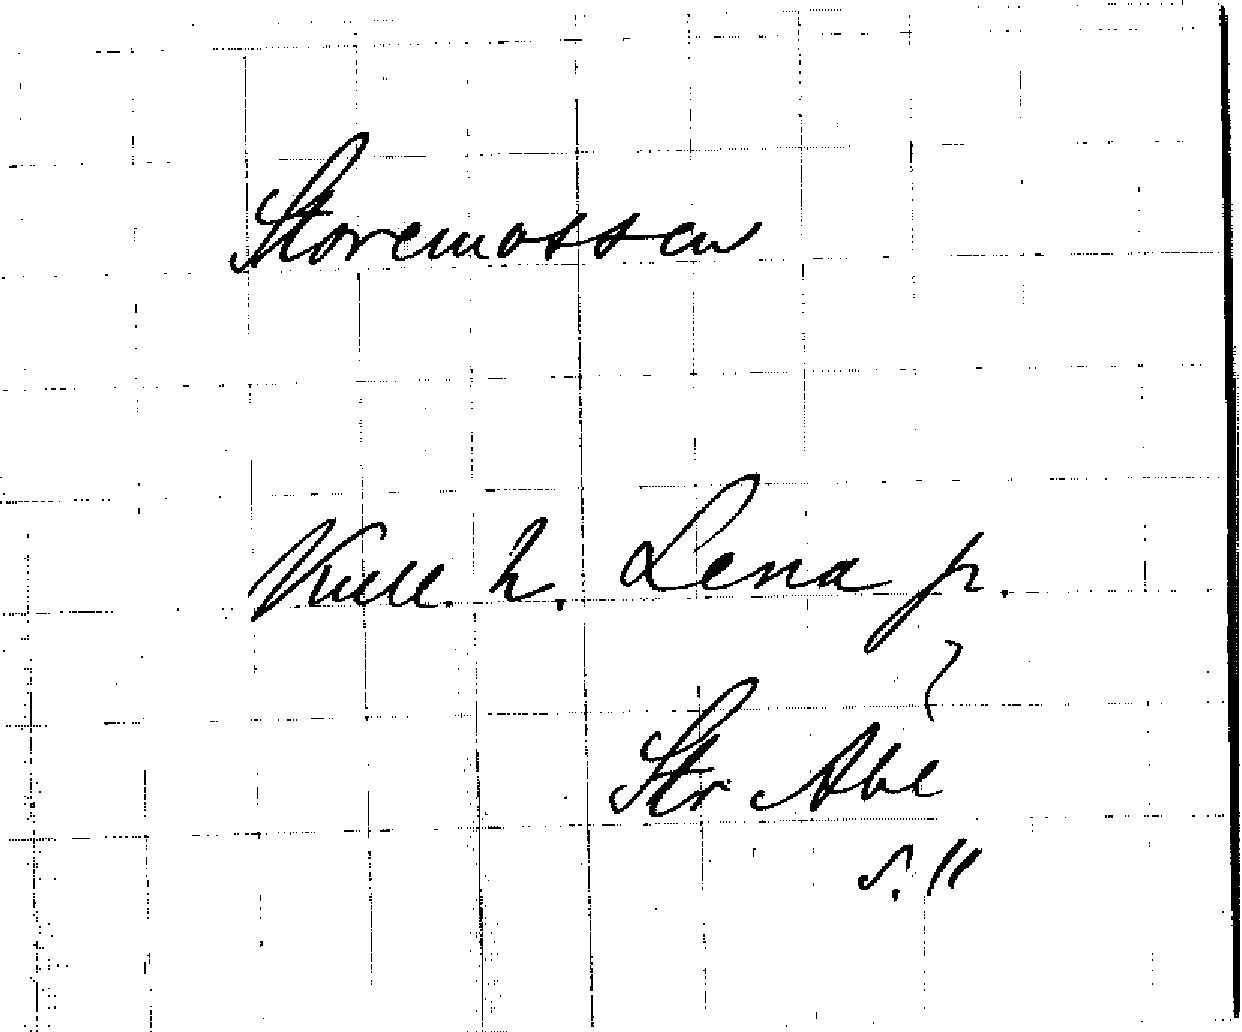 Storemossen
Kull. h. Lena p.
Str Abe
s. 11